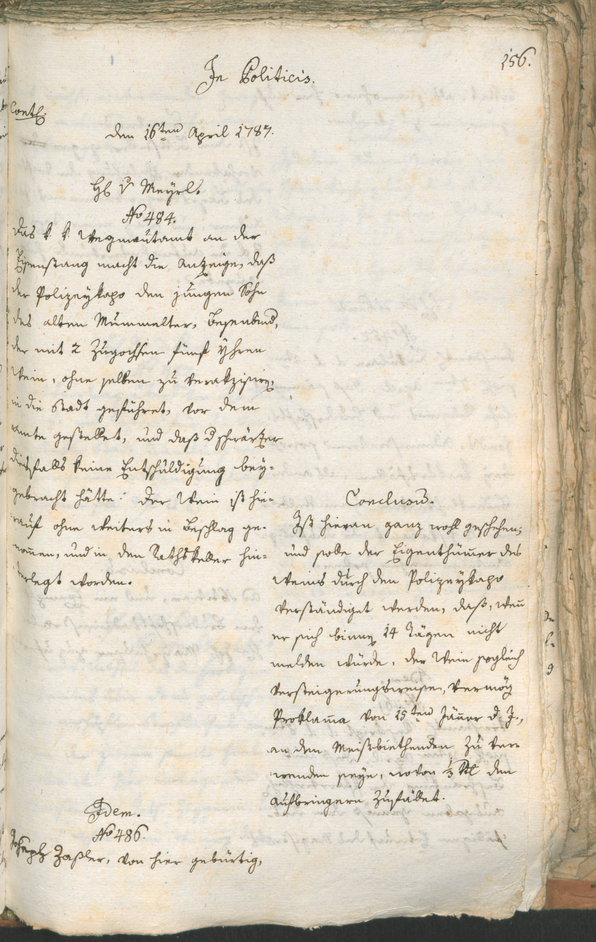 156.
In Politicis.
den 16ten April 1787.
H. v. Meyrl.
No 484.
Das k. k. Wegmautamt an der
Eisenstang macht die Anzeige, daß
der Polizeykapo den jungen Sohn
des alten Mummelter, Besenbind,
der mit 2 Zugochsen fünf Yhren
Wein, ohne selben zu
in die Stadt geführet, vor dem
Amte gestellet, und daß
diesfalls keine Entschuldigung bey-
gebracht hätte: der Wein ist hie-
rauf ohne weiters in Beschlag ge-
nommen, und in den Rathskeller hin-
terlegt worden.
Conclusum.
Ist hieran ganz wohl geschehen;
und sohe der Eigenthümer des
Weins durch den Polizeykapo
verständiget werden, daß, wenn
er sich binnen 14 Tägen nicht
melden würde, der Wein sogleich
versteigerungsweise, vermög
Proklama von 15ten Jäner d. J.,
an den Meistbiethenden zu ver-
wenden seye, wovon 1/3 tl den
Aufbringern zufallet.
Idem.
No 486.
Joseph Zasler, von hier gebürtig,